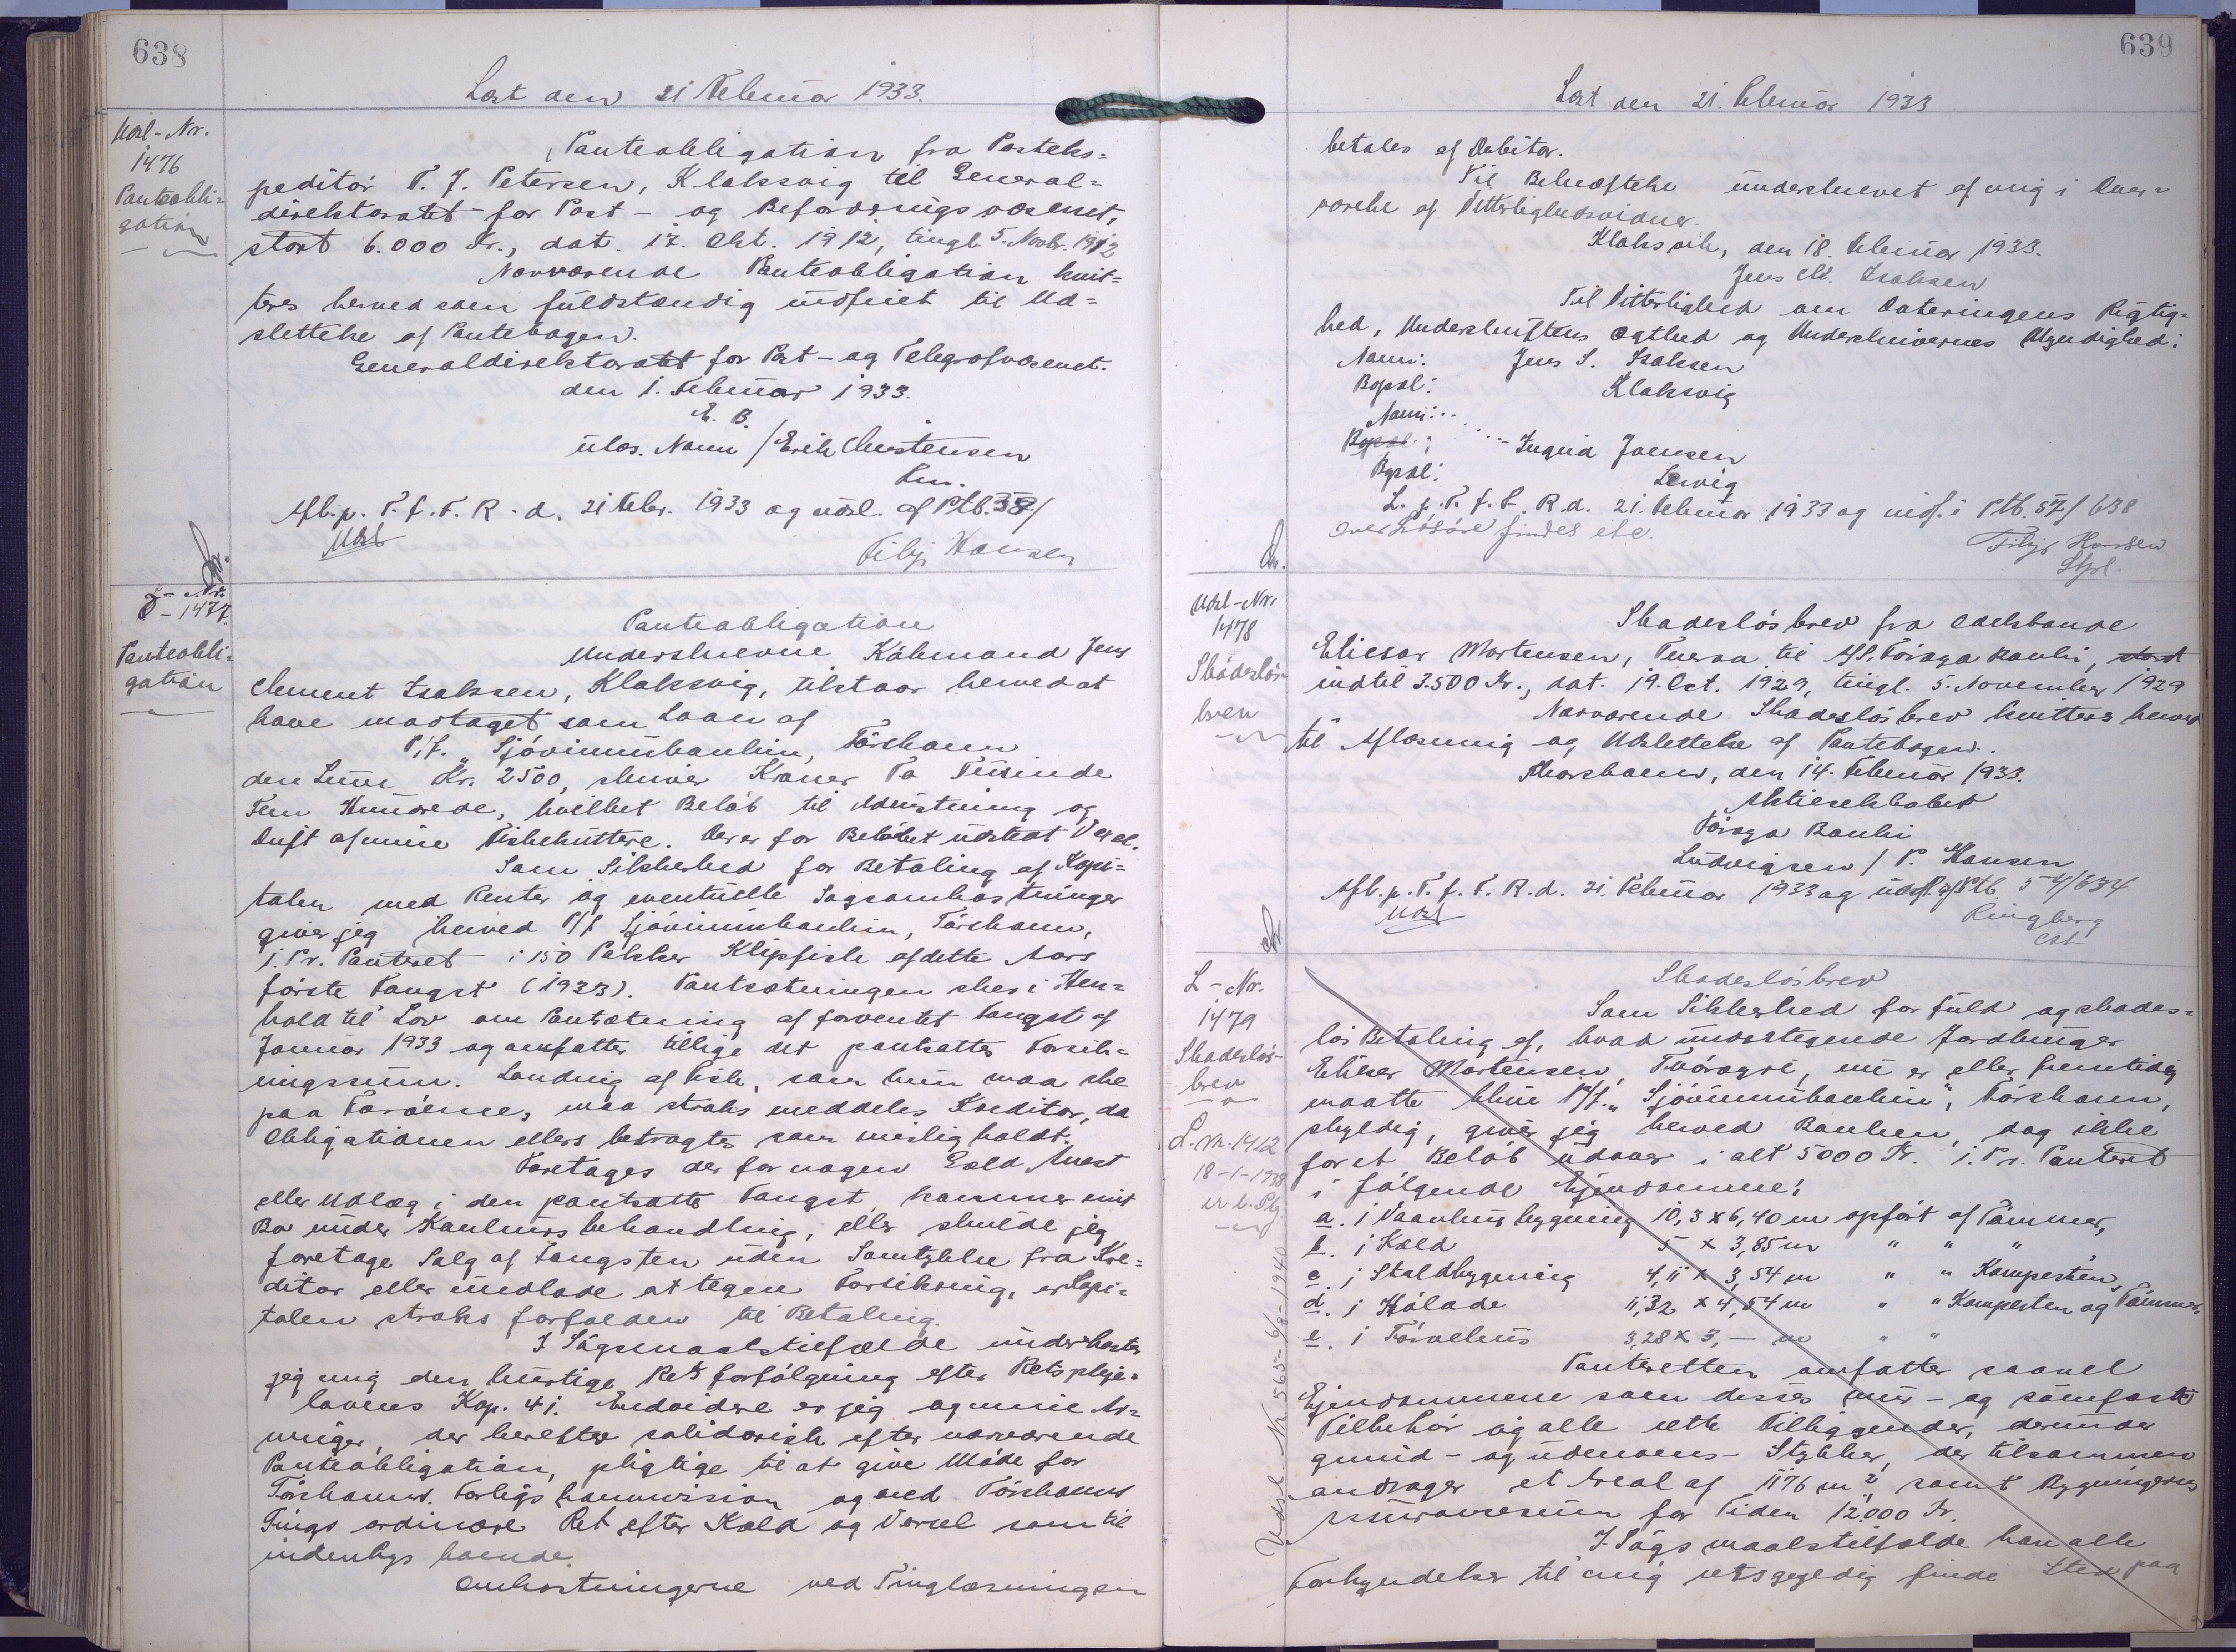 638
Læst den 21 Februar 1933.
Udsl-Nr.
1476
Panteobli-
gation
Panteobligation fra Posteks=
peditør P. J. Petersen, Klaksvig til General=
direktoratet for Post- og Befordringsvæsenet,
stort 6.000 Kr., dat. 17. Okt. 1912, tingl. 5. Novbr. 1912
Nærværende Panteobligation kvit=
teres herved som fuldstændig indfriet til Ud=
slettelse af Pantebogen.
Generaldirektoratet for Post- og Telegrafvæsenet.
den 1. Februar 1933.
E. B.
ulæs. Navn / Erik Christensen
Afl. p. T. f. F. R. d. 21 Febr. 1933 og udsl. af Ptb.
Udsl
Hansen
L-Nr.
1477.
Panteobli=
gation
Panteobligation
Underskrevne Købmand Jens
Clement Isaksen, Klaksvig, tilstaar herved at
have modtaget som Laan af
P/f. "Sjóvinnubankin, Tórshavn
den Sum Kr. 2500, skriver Kroner To Tusinde
Fem Hundrede, hvilket Beløb til Udrustning og
Drift af mine Fiskekuttere. Der er for Beløbet udstedt Vexel.
Som Sikkerhed for Betaling af Kapi=
talen med Renter og eventuelle Sagsomkostninger
giver jeg herved P/f Sjóvinnubankin, Tórshavn,
1. Pr. Panteret i 150 Pakker Klipfisk af dette Aars
første Fangst (1933). Pantsætningen sker i Hen=
hold til Lov om Pantsætning af forventet Fangst af
Januar 1933 og omfatter tillige det pantsattes Forsik=
ringssum. Landing af Fisk, som kun maa ske
paa Færøerne, maa straks meddeles Kreditor, da
Obligationen ellers betragtes som misligholdt.
Foretages der for nogen Gæld Arrest
eller Udlæg i den pantsatte Fangst, kommer mit
Bo under Konkursbehandling, eller skulde jeg
foretage Salg af Fangsten uden Samtykke fra Kre=
ditor eller undlade at tegne Forsikring, er Kapi=
talen straks forfalden til Betaling.
I Søgsmaalstilfælde underkaster
jeg mig den hurtige Retsforfølgning efter Retspleje=
lovens Kap. 41. Endvidere er jeg og mine Ar=
vinger, der hæfter solidarisk efter nærværende
Panteobligation, pligtige til at give Møde for
Tórshavns Forligskommission og ved Tórshavns
Tings ordinære Ret efter Kald og Varsel som til
indenbys boende.
Omkostningerne ved Tinglæsningen
639
Læst den 21. Februar 1933
betales af Debitor.
Til Bekræftelse underskrevet af mig i Over=
værelse af Vitterlighedsvidner.
Klaksvik, den 18. Februar 1933.
Jens Cl. Isaksen
Til Vitterlighed om Dateringens Rigtig=
hed, Underskriftens Ægthed og Underskrivernes Myndighed:
Navn: Jens S. Isaksen
Bopæl: Klaksvig
Navn: ..
Bopæl: ... Ingrid Joensen
Bopæl: Leirvig
L. p. T. f. F. R. d. 21. Februar 1933 og indf. i Ptb. 57/638
Over Løsøre findes ikke.
Hansen
Udsl-Nr.
1478
Skadesløs-
brev
Skadesløsbrev fra Odelsbonde
Eliesar Mortensen, Tveraa til A/S. Føroya Banki, stort
indtil 3.500 Kr., dat. 19. Oct. 1929, tingl. 5. November 1929
Nærværende Skadesløsbrev kvitteres herved
til Aflæsning og Udslettelse af Pantebogen.
Thorshavn, den 14. Februar 1933.
Aktieselskabet
Føroya Banki
Ludvigsen / P. Hansen
Afl. p. T. f. F. R. d. 21. Februar 1933 og udsl. af Ptb. 54/634
Udsl
Ringberg
cst
L-Nr.
1479
Skadesløs-
brev
L. Nr. 1412
18-1-1938
Udsl. Nr. 565-6/8-1940
Skadesløsbrev
Som Sikkerhed for fuld og skades=
løs Betaling af, hvad undertegnede Jordbruger
Elieser Mortensen, Tvöroyri, nu er eller fremtidig
maatte blive P/f. "Sjóvinnubankin", Tórshavn,
skyldig, giver jeg herved Banken, dog ikke
for et Beløb udover i alt 5000 Kr. 1. Pr. Panteret
i følgende Ejendomme:
a. i Vaanhus bygning 10,3 x 6,40 m opført af Tømmer,
b. i Kæld 5 x 3,85 m " " "
c. i Staldbygning 4,11 x 3,54 m " " Kampesten,
d. i Hølade 11,32 x 4,54 m " " Kampesten og Tømmer,
e. i Tørvehus 3,28 x 3,- m " "
Panteretten omfatter saavel
Ejendommene som disses mur- og sømfaste
Tilbehør og alle rette Tilliggender, derunder
grund- og udenoms- Stykker, der tilsammen
andrager et Areal af 1176 m², samt Bygningernes
Assurancesum for Tiden 12.000 Kr.
I Søgsmaalstilfælde kan alle
Forkyndelser til mig retsgyldig finde Sted paa